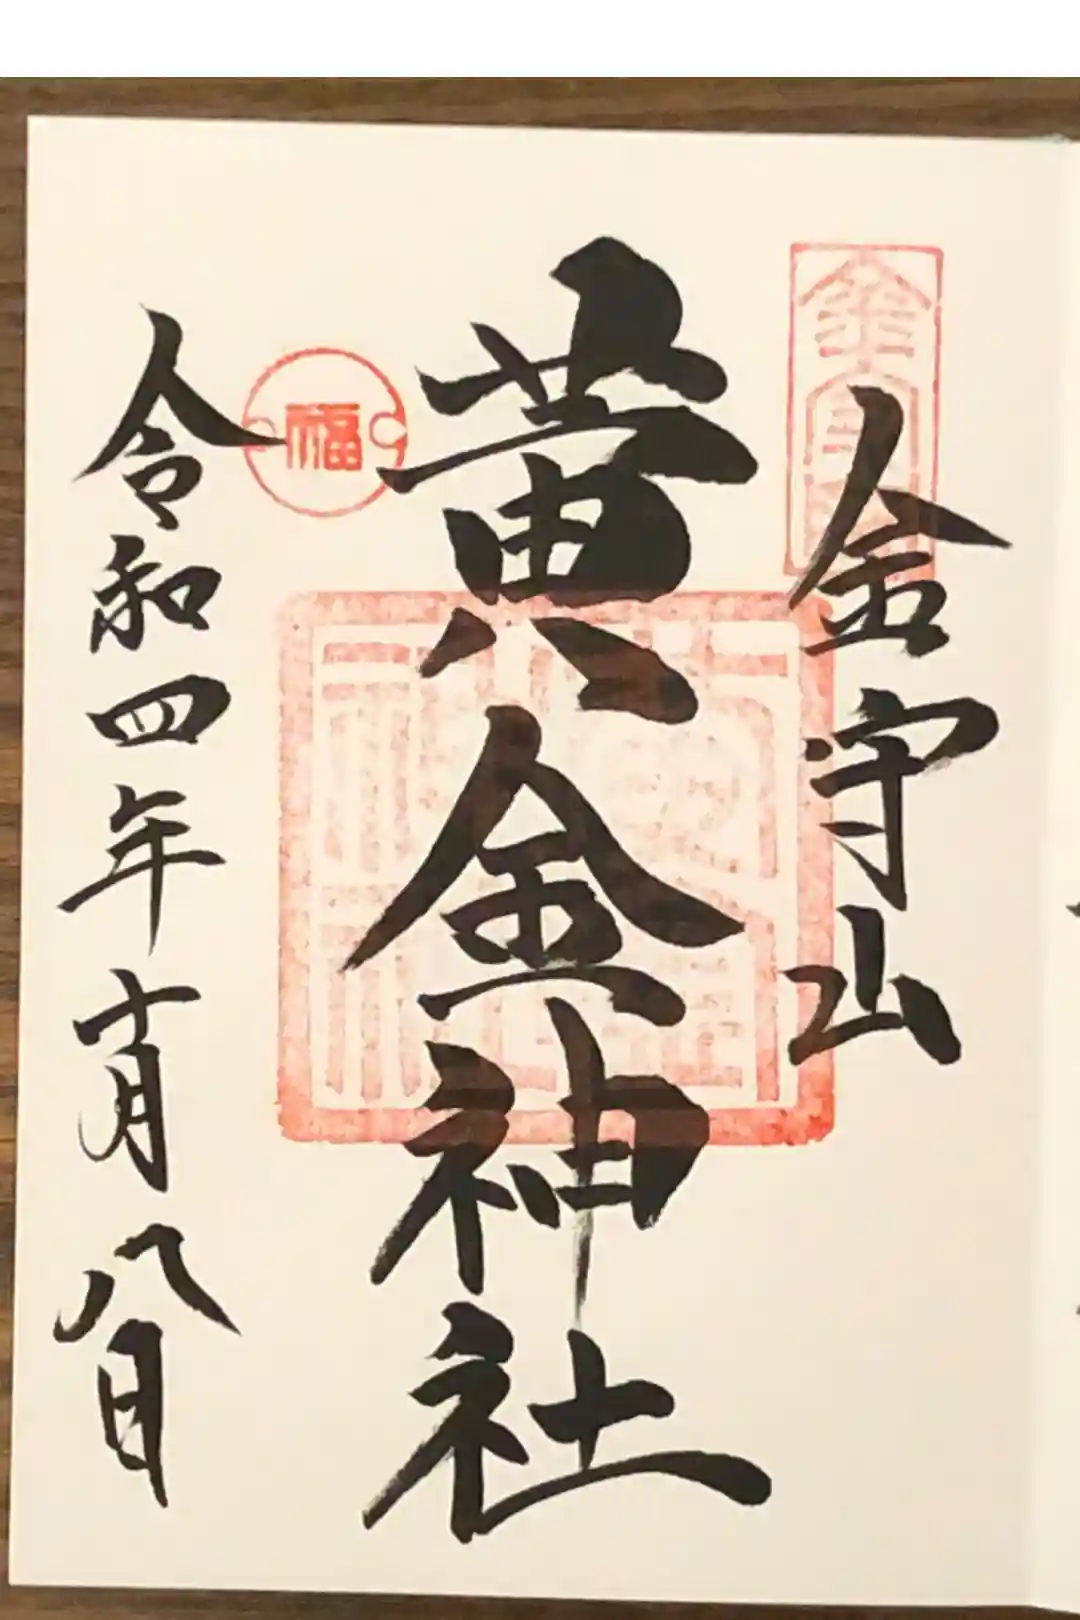 金守山
黄金神社
福
令和四年十月八日